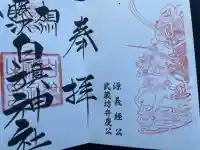 奉拝
源義経公
武蔵坊弁慶公
白旗神社